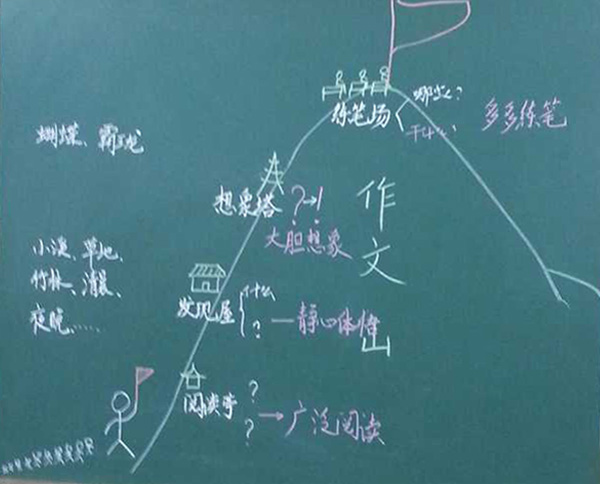 哪些?
练笔场
干什么?
多多练笔
蝴蝶、霸王龙
想象塔
?→!
大胆想象
作文山
小溪、草地、
竹林、清晨、
夜晚……
发现屋
干什么
?
静心体悟
阅读亭
?
?
→广泛阅读